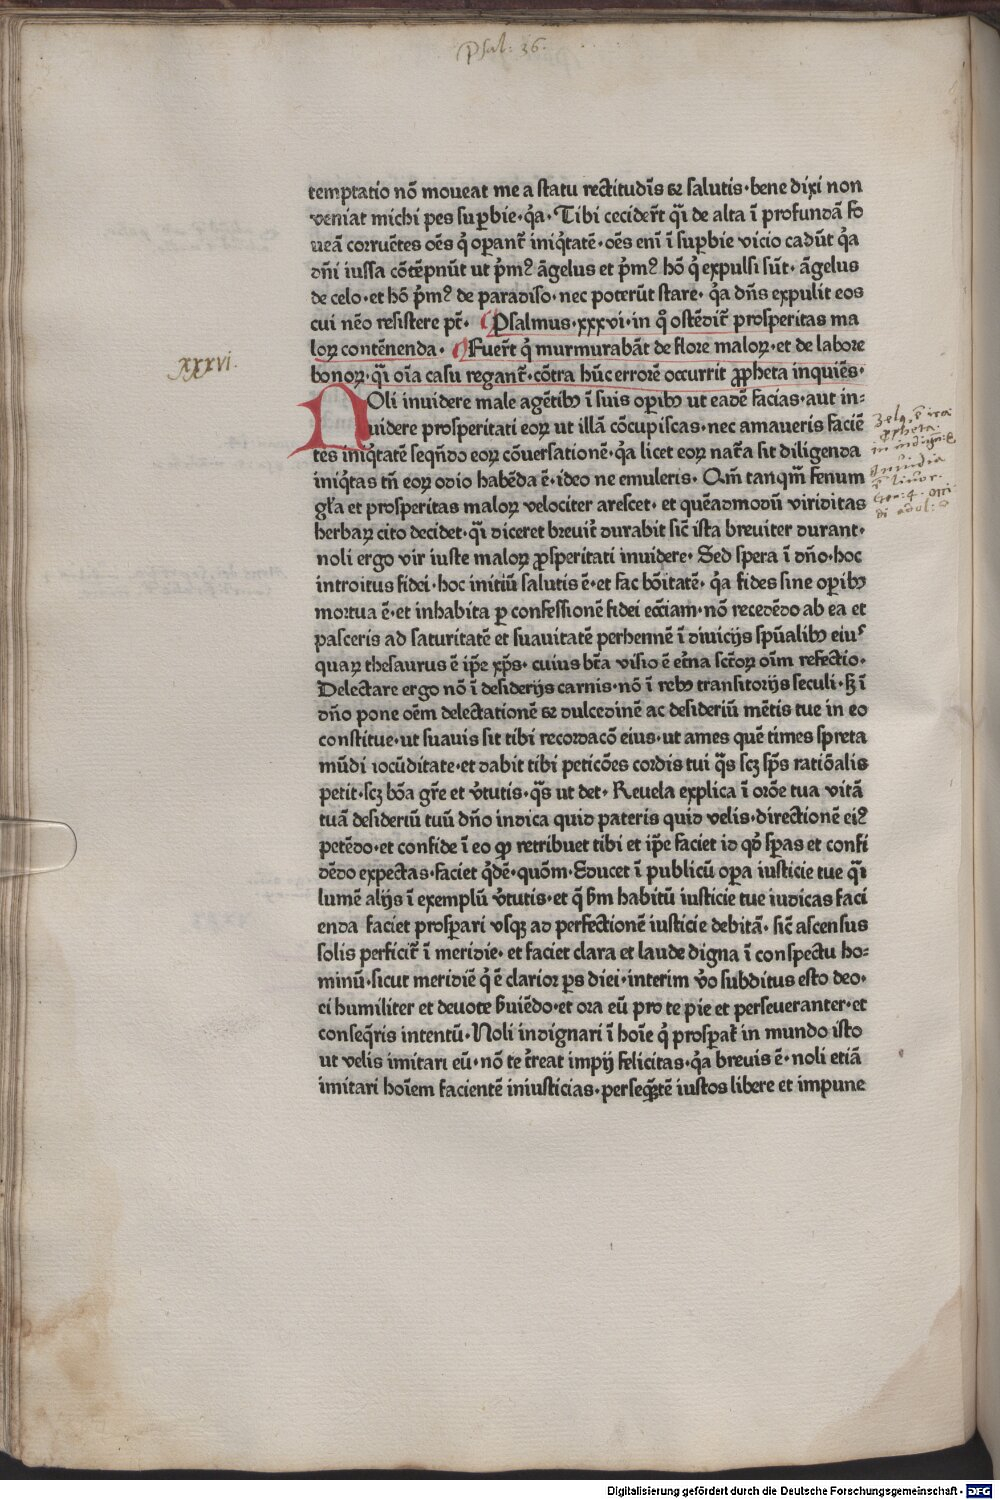 Psal: 36.
temptatio nō moveat me a statu rectitudīs et salutis· bene dixi non
veniat michi pes suꝑbie· q̇a· Tibi cecider̄t qͥ de alta ī profundā fo
ueā corruētes oēs q̇ oꝑant᷑ iniq̇tatē· oēs enī ī suꝑbie vicio cadūt q̇a
dn̄i iussa cōtēpnūt ut p̓mꝰ āgelus et p̓mꝰ hō q̇ expulsi sūt· āgelus
de celo· et hō p̓mꝰ de paradiso· nec poterūt stare· q̇a dn̄s expulit eos
cui nēo resistere pt̄· Psalmus· xxxvi· in q̊ ostēdit᷑ prosperitas ma
loꝝ contēnenda· Fuer̄t q̇ murmurabāt de flore maloꝝ· et de labore
xxxvi.
bonoꝝ· qͥ oīa casu regant᷑· cōtra hūc errorē occurrit ꝓpheta inquiēs·
NOli inuidere male agētibꝰ ī suis oꝑibꝰ ut eadē facias· aut in-
uidere prosperitati eoꝝ ut illā cōcupiscas· nec amaueris faciē
tes iniq̇tatē seqn̄do eoꝝ cōuersationē· q̇a licet eoꝝ nat᷑a sit diligenda
iniq̇tas tn̄ eoꝝ odio habēda ē· ideo ne emuleris· Qm̄ tanqm̄ fenum
gl᷑a et prosperitas maloꝝ velociter arescet· et quēadmodū viriditas
herbaꝝ cito decidet· qͥ diceret breuit᷑ durabit sic̄ ista breuiter durant·
noli ergo vir iuste maloꝝ ꝓsperitati inuidere· Sed spera ī dn̄o· hoc
introitus fidei· hoc initiū salutis ē· et fac bōitatē· q̇a fides sine oꝑibꝰ
mortua ē· et inhabita ꝑ confessionē fidei ecc̄iam· nō recedēdo ab ea et
pasceris ad saturitatē et suauitatē perhennē ī diuicijs spūalibꝰ eiuˢ
quaꝝ thesaurus ē ip̄e xp̄s· cuius bt̄a visio ē et̄na sct̄oꝝ oīm refectio·
Delectare ergo nō ī desiderijs carnis· nō ī rebꝰ transitorijs seculi· sꝫ ī
dn̄o pone oēm delectationē et dulcedinē ac desideriū mētis tue in eo
constitue· ut suauis sit tibi recordacō eius· ut ames quē times spreta
mūdi iocūditate· et dabit tibi peticōes cordis tui q̄s scꝫ sp̄s ratiōalis
petit· scꝫ bōa gr̄e et v̓tutis· q̄s ut det· Reuela explica ī orōe tua vitā
tuā desideriū tuū dn̄o indica quid pateris quid velis· directionē eiꝰ
petēdo· et confide ī eo qꝙ retribuet tibi et ip̄e faciet id qd̓ sꝑas et confi
dēdo expectas· faciet q̓dē· quōm· Educet ī publicū oꝑa iusticie tue qͥ
lumē alijs ī exemplū v̓tutis· et q̄ ẜm habitū iusticie tue iudicas faci
enda faciet prosꝑari vsqꝫ ad perfectionē iusticie debitā· sic̄ ascensus
solis perficit᷑ ī meridie· et faciet clara et laude digna ī conspectu ho-
minū· sicut meridiē q̇ ē clarior ꝑs diei· interim v̊o subditus esto deo·
ei humiliter et deuote ẜuiēdo· et ora eū pro te pie et perseueranter· et
conseq̄ris intentū· Noli indignari ī hoīe q̇ prosꝑat᷑ in mundo isto
ut velis imitari eū· nō te t᷑reat impij felicitas· q̇a breuis ē· noli etiā
imitari hoīem facientē iniusticias· persequētē iustos libere et impune
ꝓpheta.
Inuidia
ē liuor.
Gen: 4.
Digitalisierung gefördert durch die Deutsche Forschungsgemeinschaft - DFG